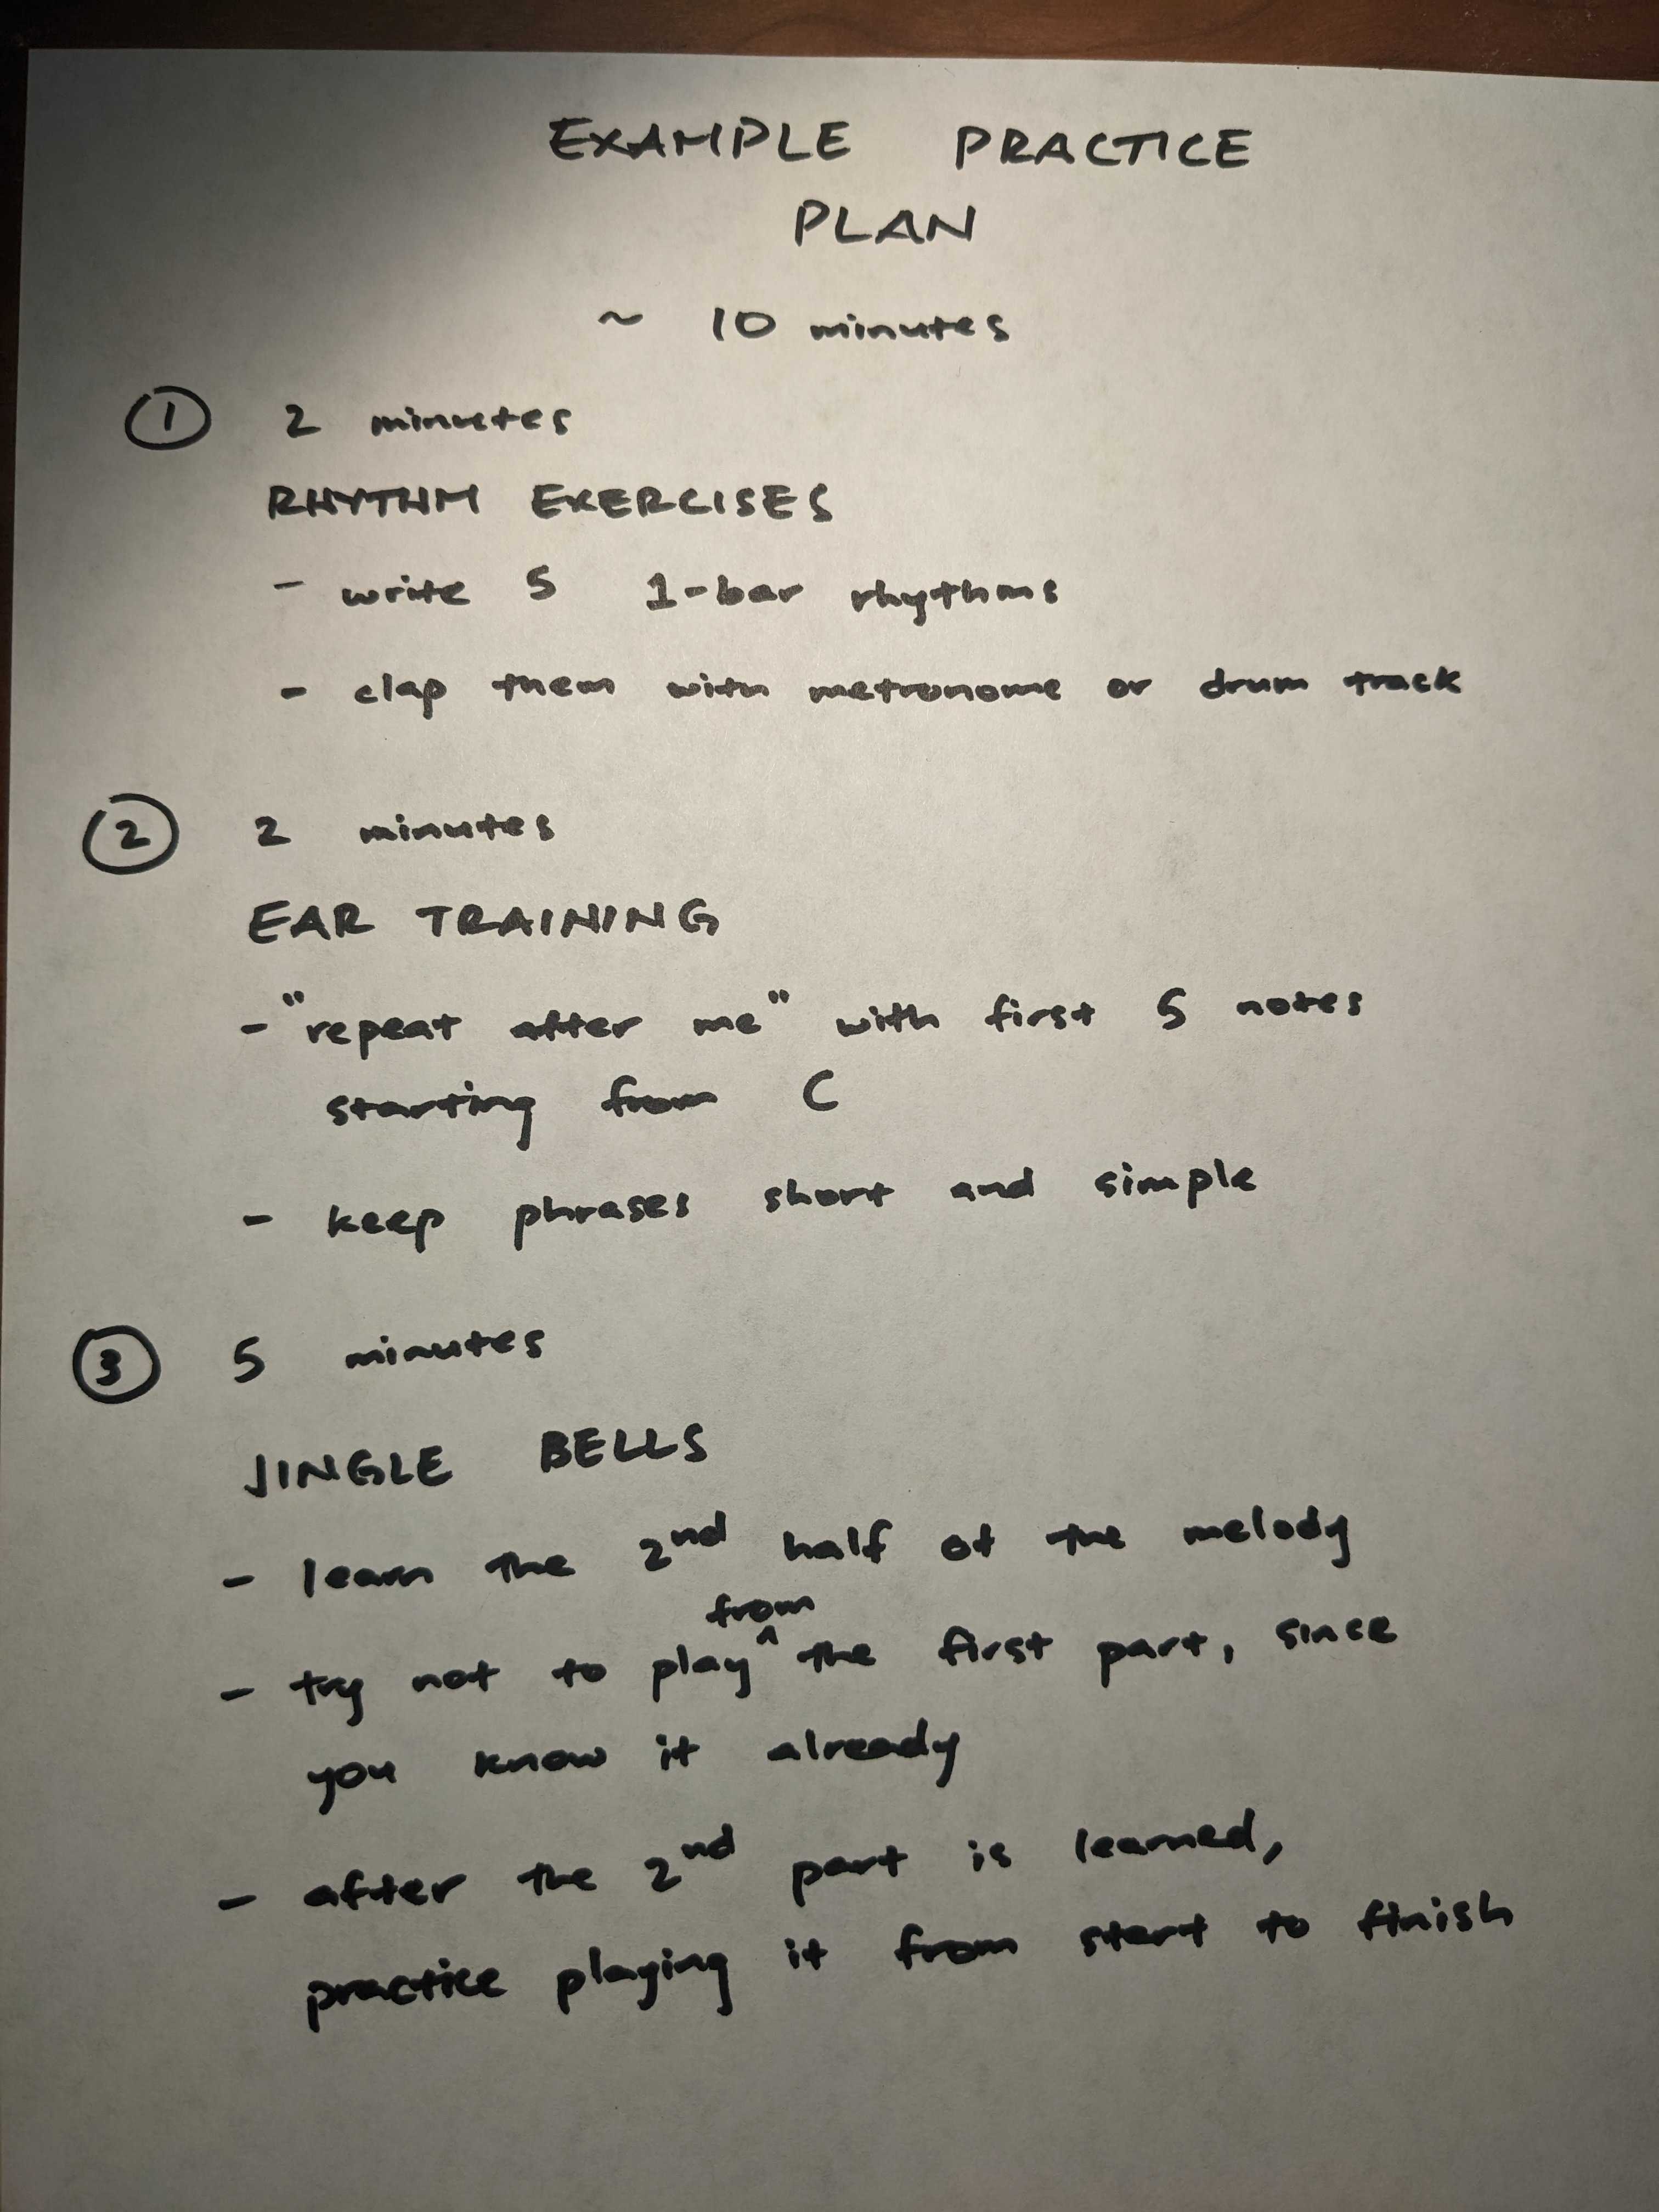 EXAMPLE PRACTICE
PLAN
~ 10 minutes
① 2 minutes
RHYTHM EXERCISES
- write 5 1-bar rhythms
- clap them with metronome or drum track
② 2 minutes
EAR TRAINING
- "repeat after me" with first 5 notes
starting from C
- keep phrases short and simple
③ 5 minutes
JINGLE BELLS
- learn the 2nd half of the melody
- try not to play ^from the first part, since
you know it already
- after the 2nd part is learned,
practice playing it from start to finish